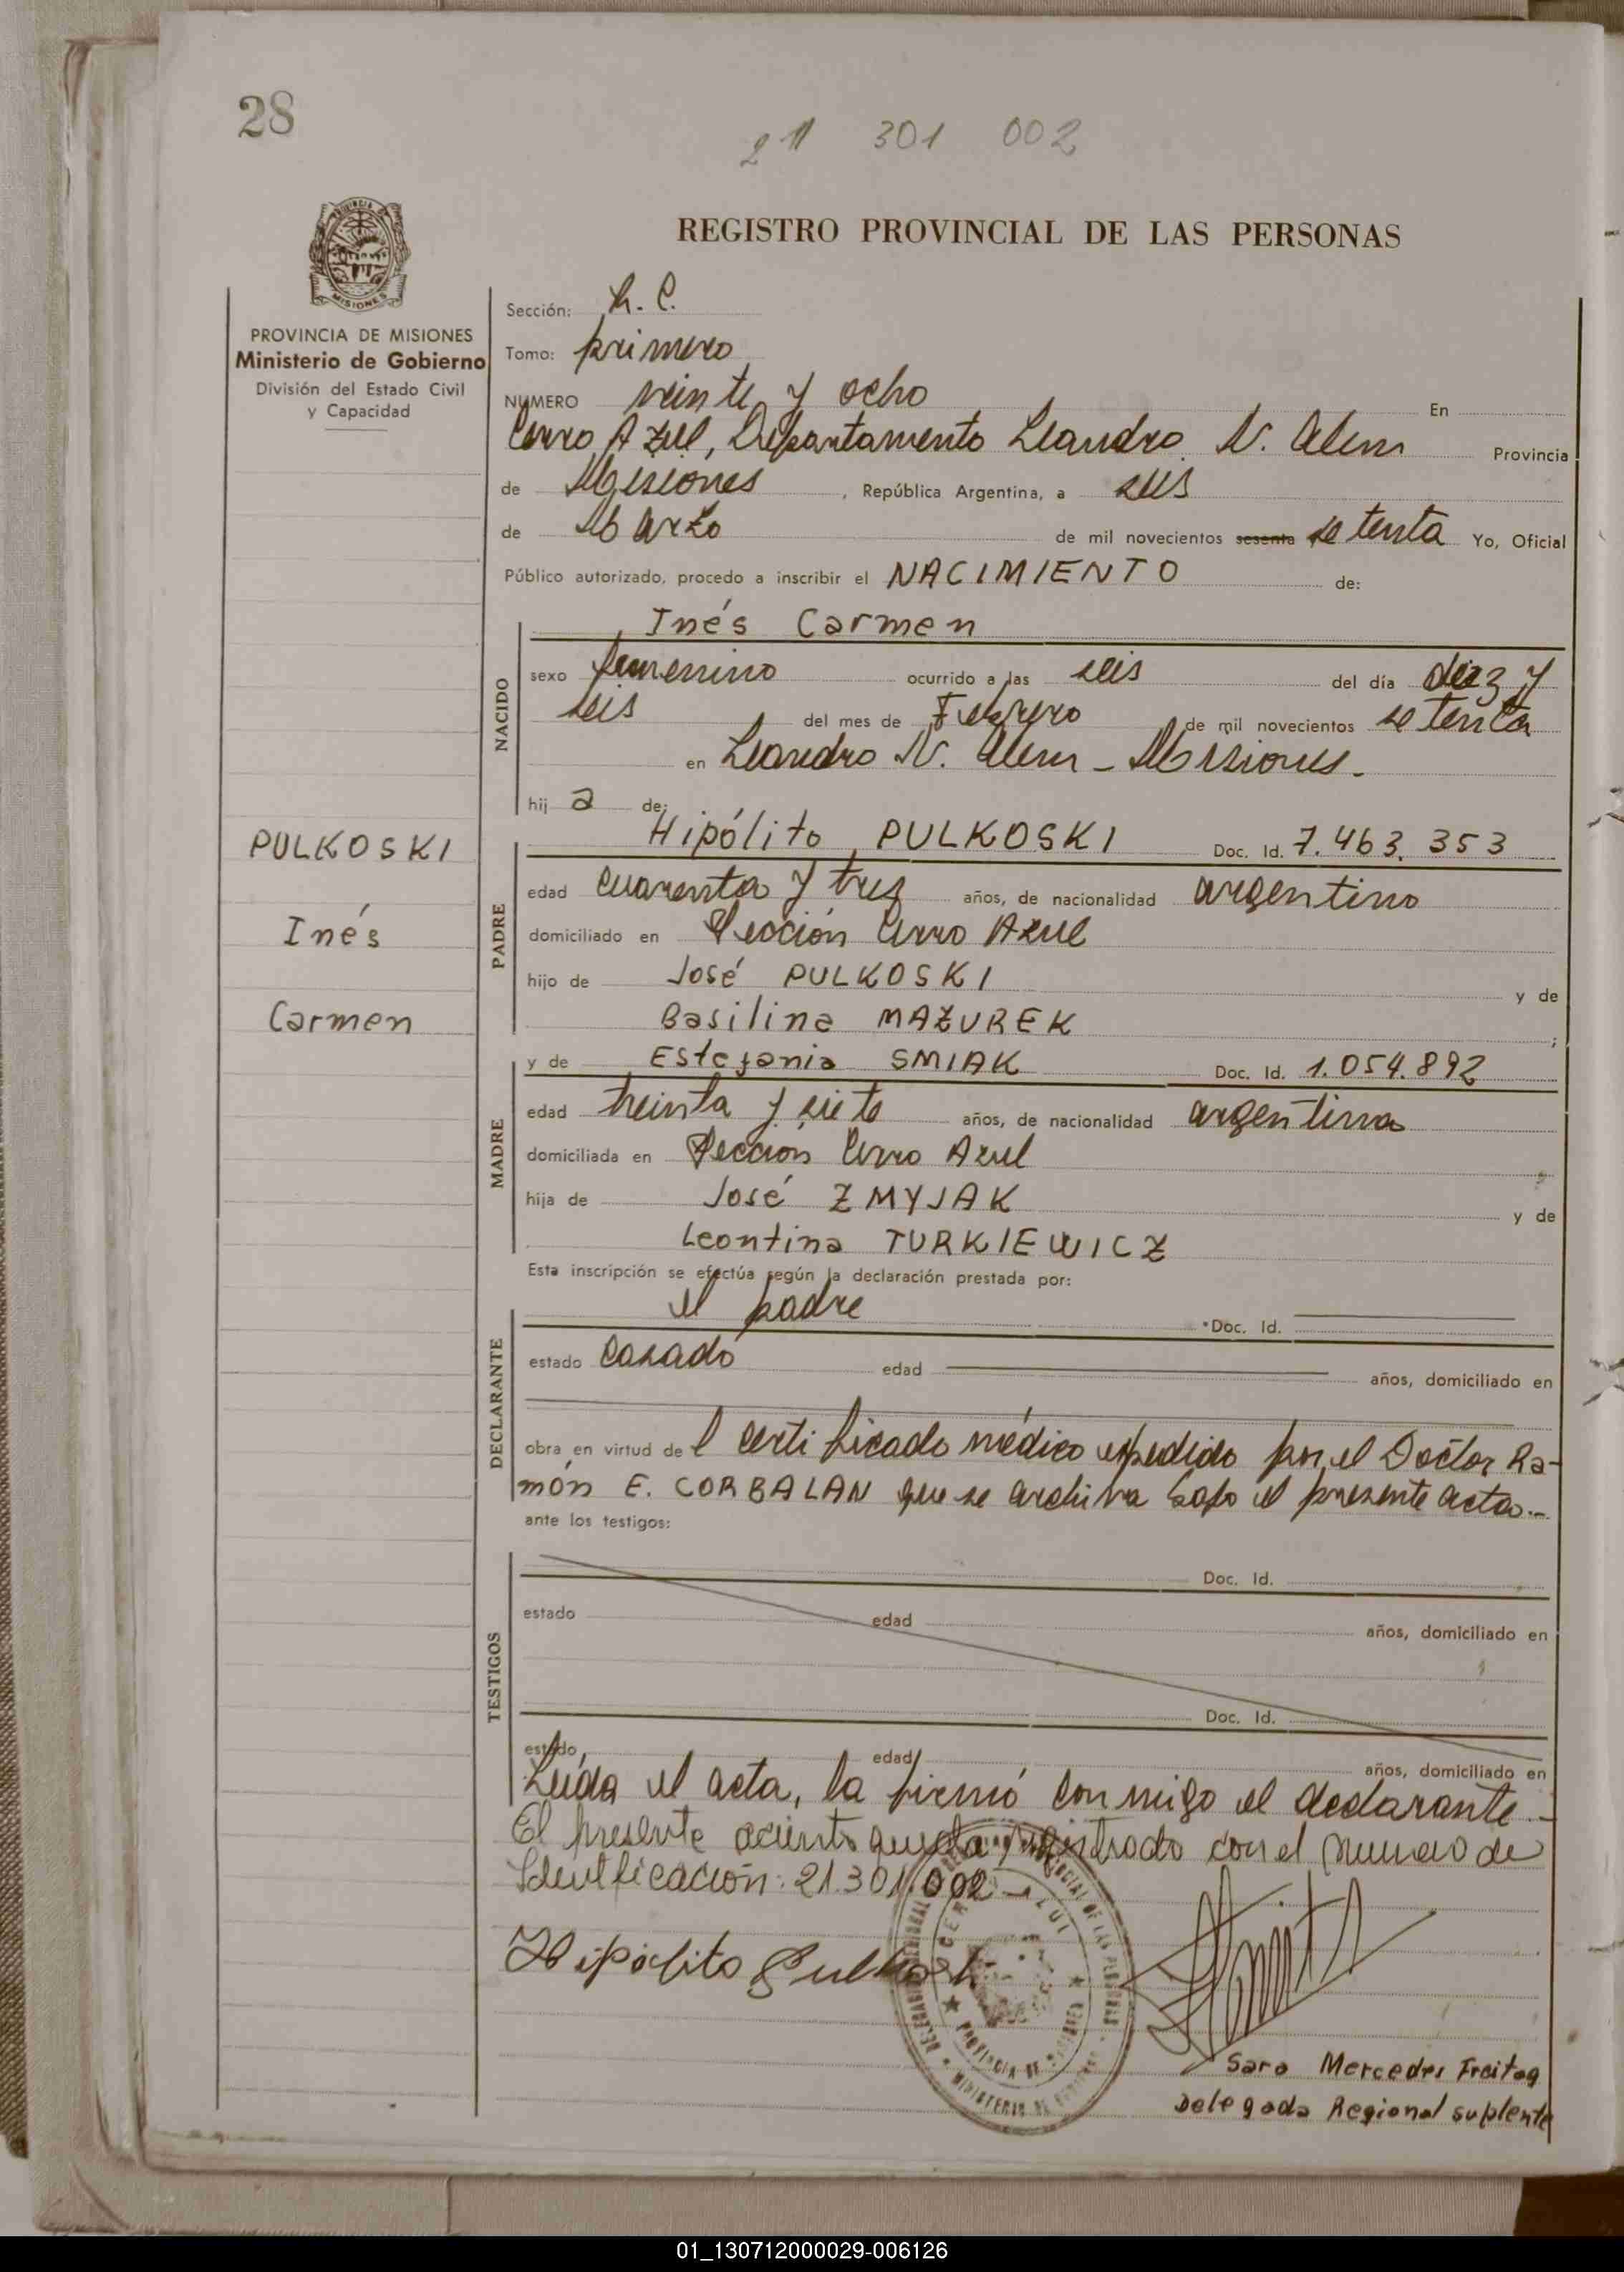 28
21 301 002
REGISTRO PROVINCIAL DE LAS PERSONAS
PROVINCIA DE MISIONES
Ministerio de Gobierno
División del Estado Civil
y Capacidad
Sección: R. C.
Tomo: primero
NUMERO veinte y ocho En
Cerro Azul, Departamento Leandro N. Alem Provincia
de Misiones, República Argentina, a seis
de Marzo de mil novecientos sesenta setenta Yo, Oficial
Público autorizado, procedo a inscribir el NACIMIENTO de:
Inés Carmen
NACIDO
sexo femenino ocurrido a las seis del día diez y
seis del mes de Febrero de mil novecientos setenta
en Leandro N. Alem - Misiones.
hij a de:
PULKOSKI
Inés
Carmen
Hipólito PULKOSKI Doc. Id. 7.463.353
PADRE
edad cuarenta y tres años, de nacionalidad argentino
domiciliado en Sección Cerro Azul
hijo de José PULKOSKI y de
Basilina MAZUREK ;
y de Estefania SMIAK Doc. Id. 1.054.892
MADRE
edad treinta y siete años, de nacionalidad argentina
domiciliada en Sección Cerro Azul
hija de José ZMYJAK y de
Leontina TURKIEWICZ
Esta inscripción se efectúa según la declaración prestada por:
el padre Doc. Id.
DECLARANTE
estado casado edad años, domiciliado en
obra en virtud de l certificado médico expedido por el Doctor Ra-
món E. CORBALAN que se archiva bajo el presente acta.-
ante los testigos:
TESTIGOS
Doc. Id.
estado edad años, domiciliado en
Doc. Id.
estado edad años, domiciliado en
Leída el acta, la firmó conmigo el declarante.-
El presente asiento queda registrado con el numero de
Identificación: 21.301.002-
Hipólito Pulkoski
PROVINCIA DE MISIONES
Sara Mercedes Freitag
Delegada Regional suplente
01_130712000029-006126